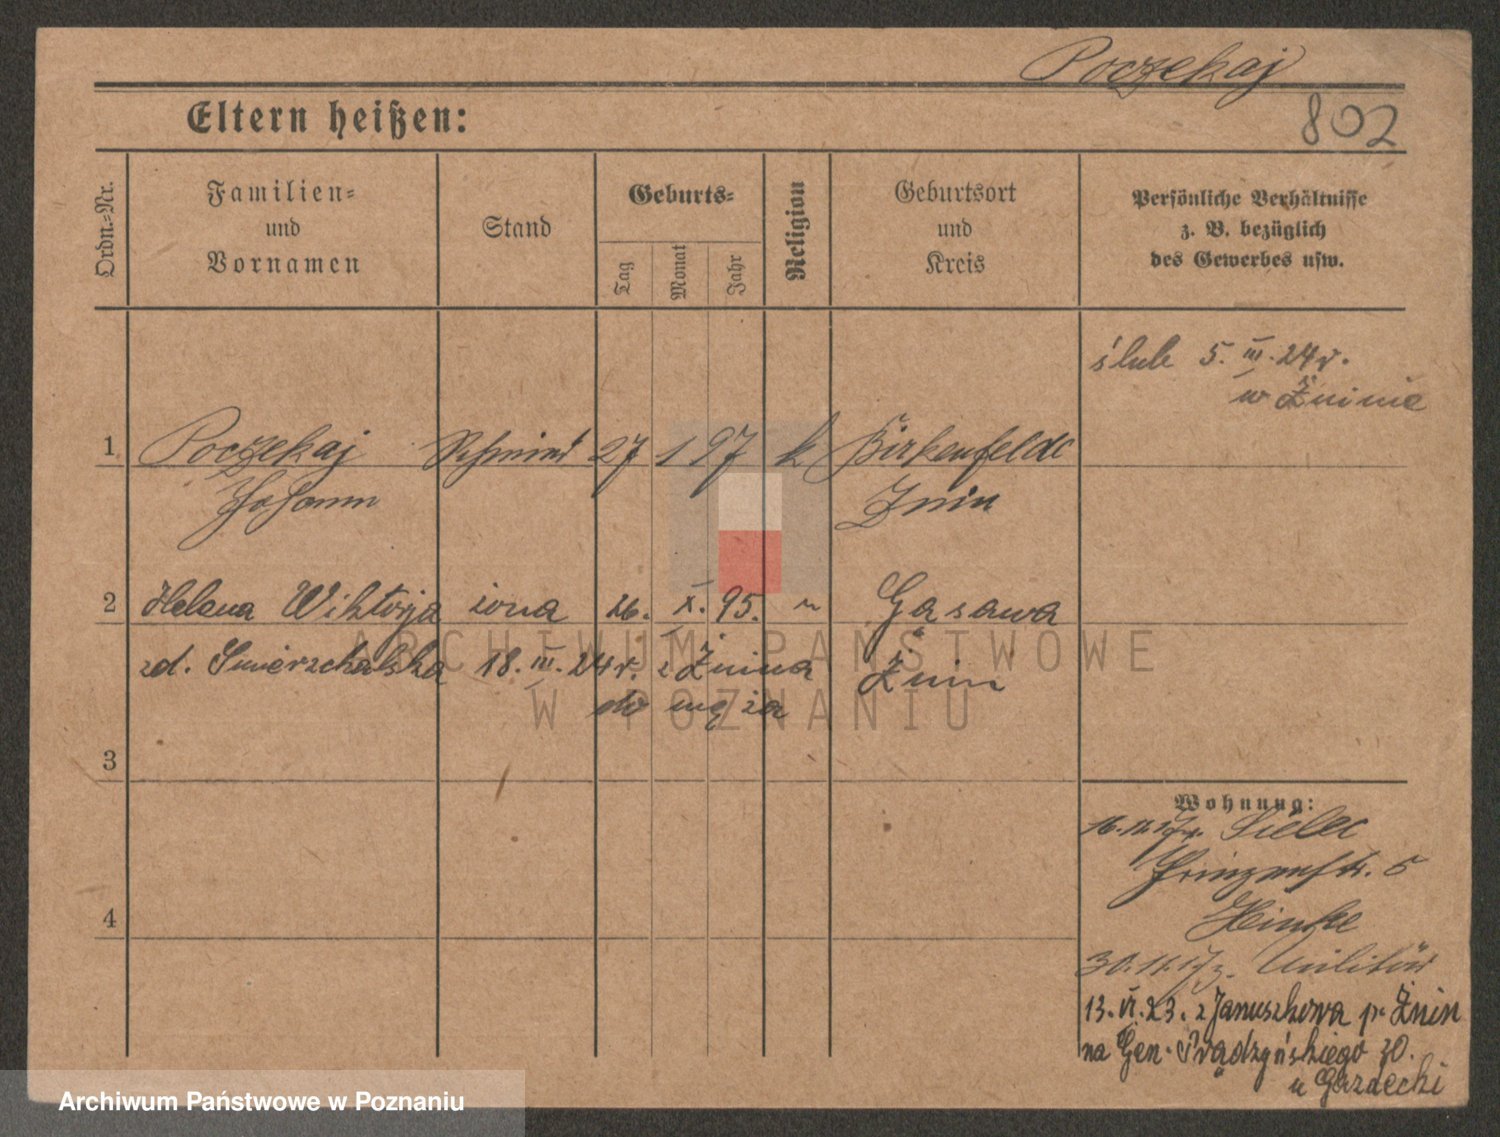 Poczekaj
802
Eltern heißen:
Ordn.-Nr.
Familien-
und
Vornamen
Stand
Geburts-
Tag
Monat
Jahr
Religion
Geburtsort
und
Kreis
Persönliche Verhältnisse
z. B. bezüglich
des Gewerbes usw.
ślub 5. III. 24 r.
w Żninie
1 Poczekaj Schmied 27 1 97 k Birkenfelde
Johann Znin
2 Helena Wiktorja żona 26. X. 95. " Gąsawa
zd. Smierzchalska 18. III. 24 r. z Żnina Żnin
do męża
3
4
Wohnung:
Prinzenstr. 5
30.11.17 z. Militär
13. VI. 23. z Januszkowa p. Żnin
na Gen. Prądzyńskiego 30.
u Gazdecki
ARCHIWUM PAŃSTWOWE
W POZNANIU
Archiwum Państwowe w Poznaniu